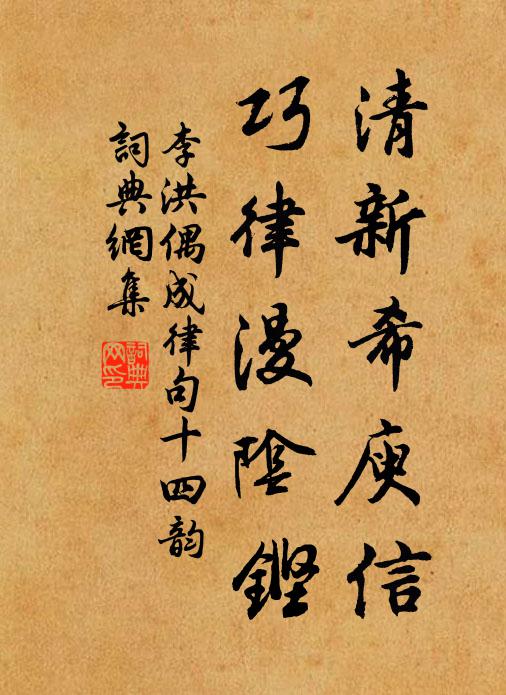 清新希庾信
巧律漫陰鏗
李洪偶成律句十四韵
詞典網集
詞典网印